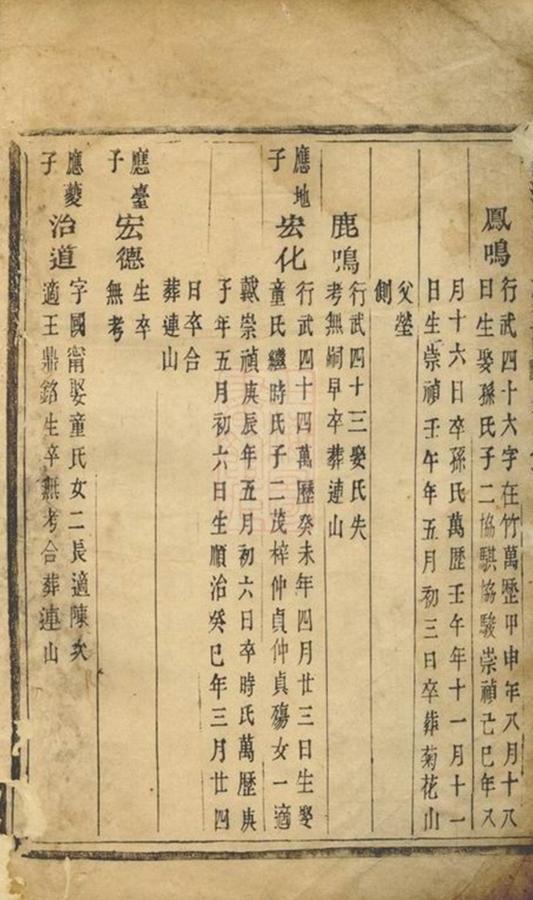 鳳鳴
行武四十六字在竹萬歷甲申年八月十八
日生娶孫氏子二協騏協駿崇禎己巳年八
月十六日卒孫氏萬歷壬午年十一月十一
日生崇禎壬午年五月初三日卒葬菊花山
父塋
側
鹿鳴
行武四十三娶氏失
考無嗣早卒葬連山
應地
子
宏化
行武四十四萬歷癸未年四月廿三日生娶
童氏繼時氏子二茂梓仲貞仲貞殤女一適
戴崇禎庚辰年五月初六日卒時氏萬歷庚
子年五月初六日生順治癸巳年三月廿四
日卒合
葬連山
應臺
子
宏德
生卒
無考
應夔
子
治道
字國甯娶童氏女二長適陳次
適王鼎銘生卒無考合葬連山